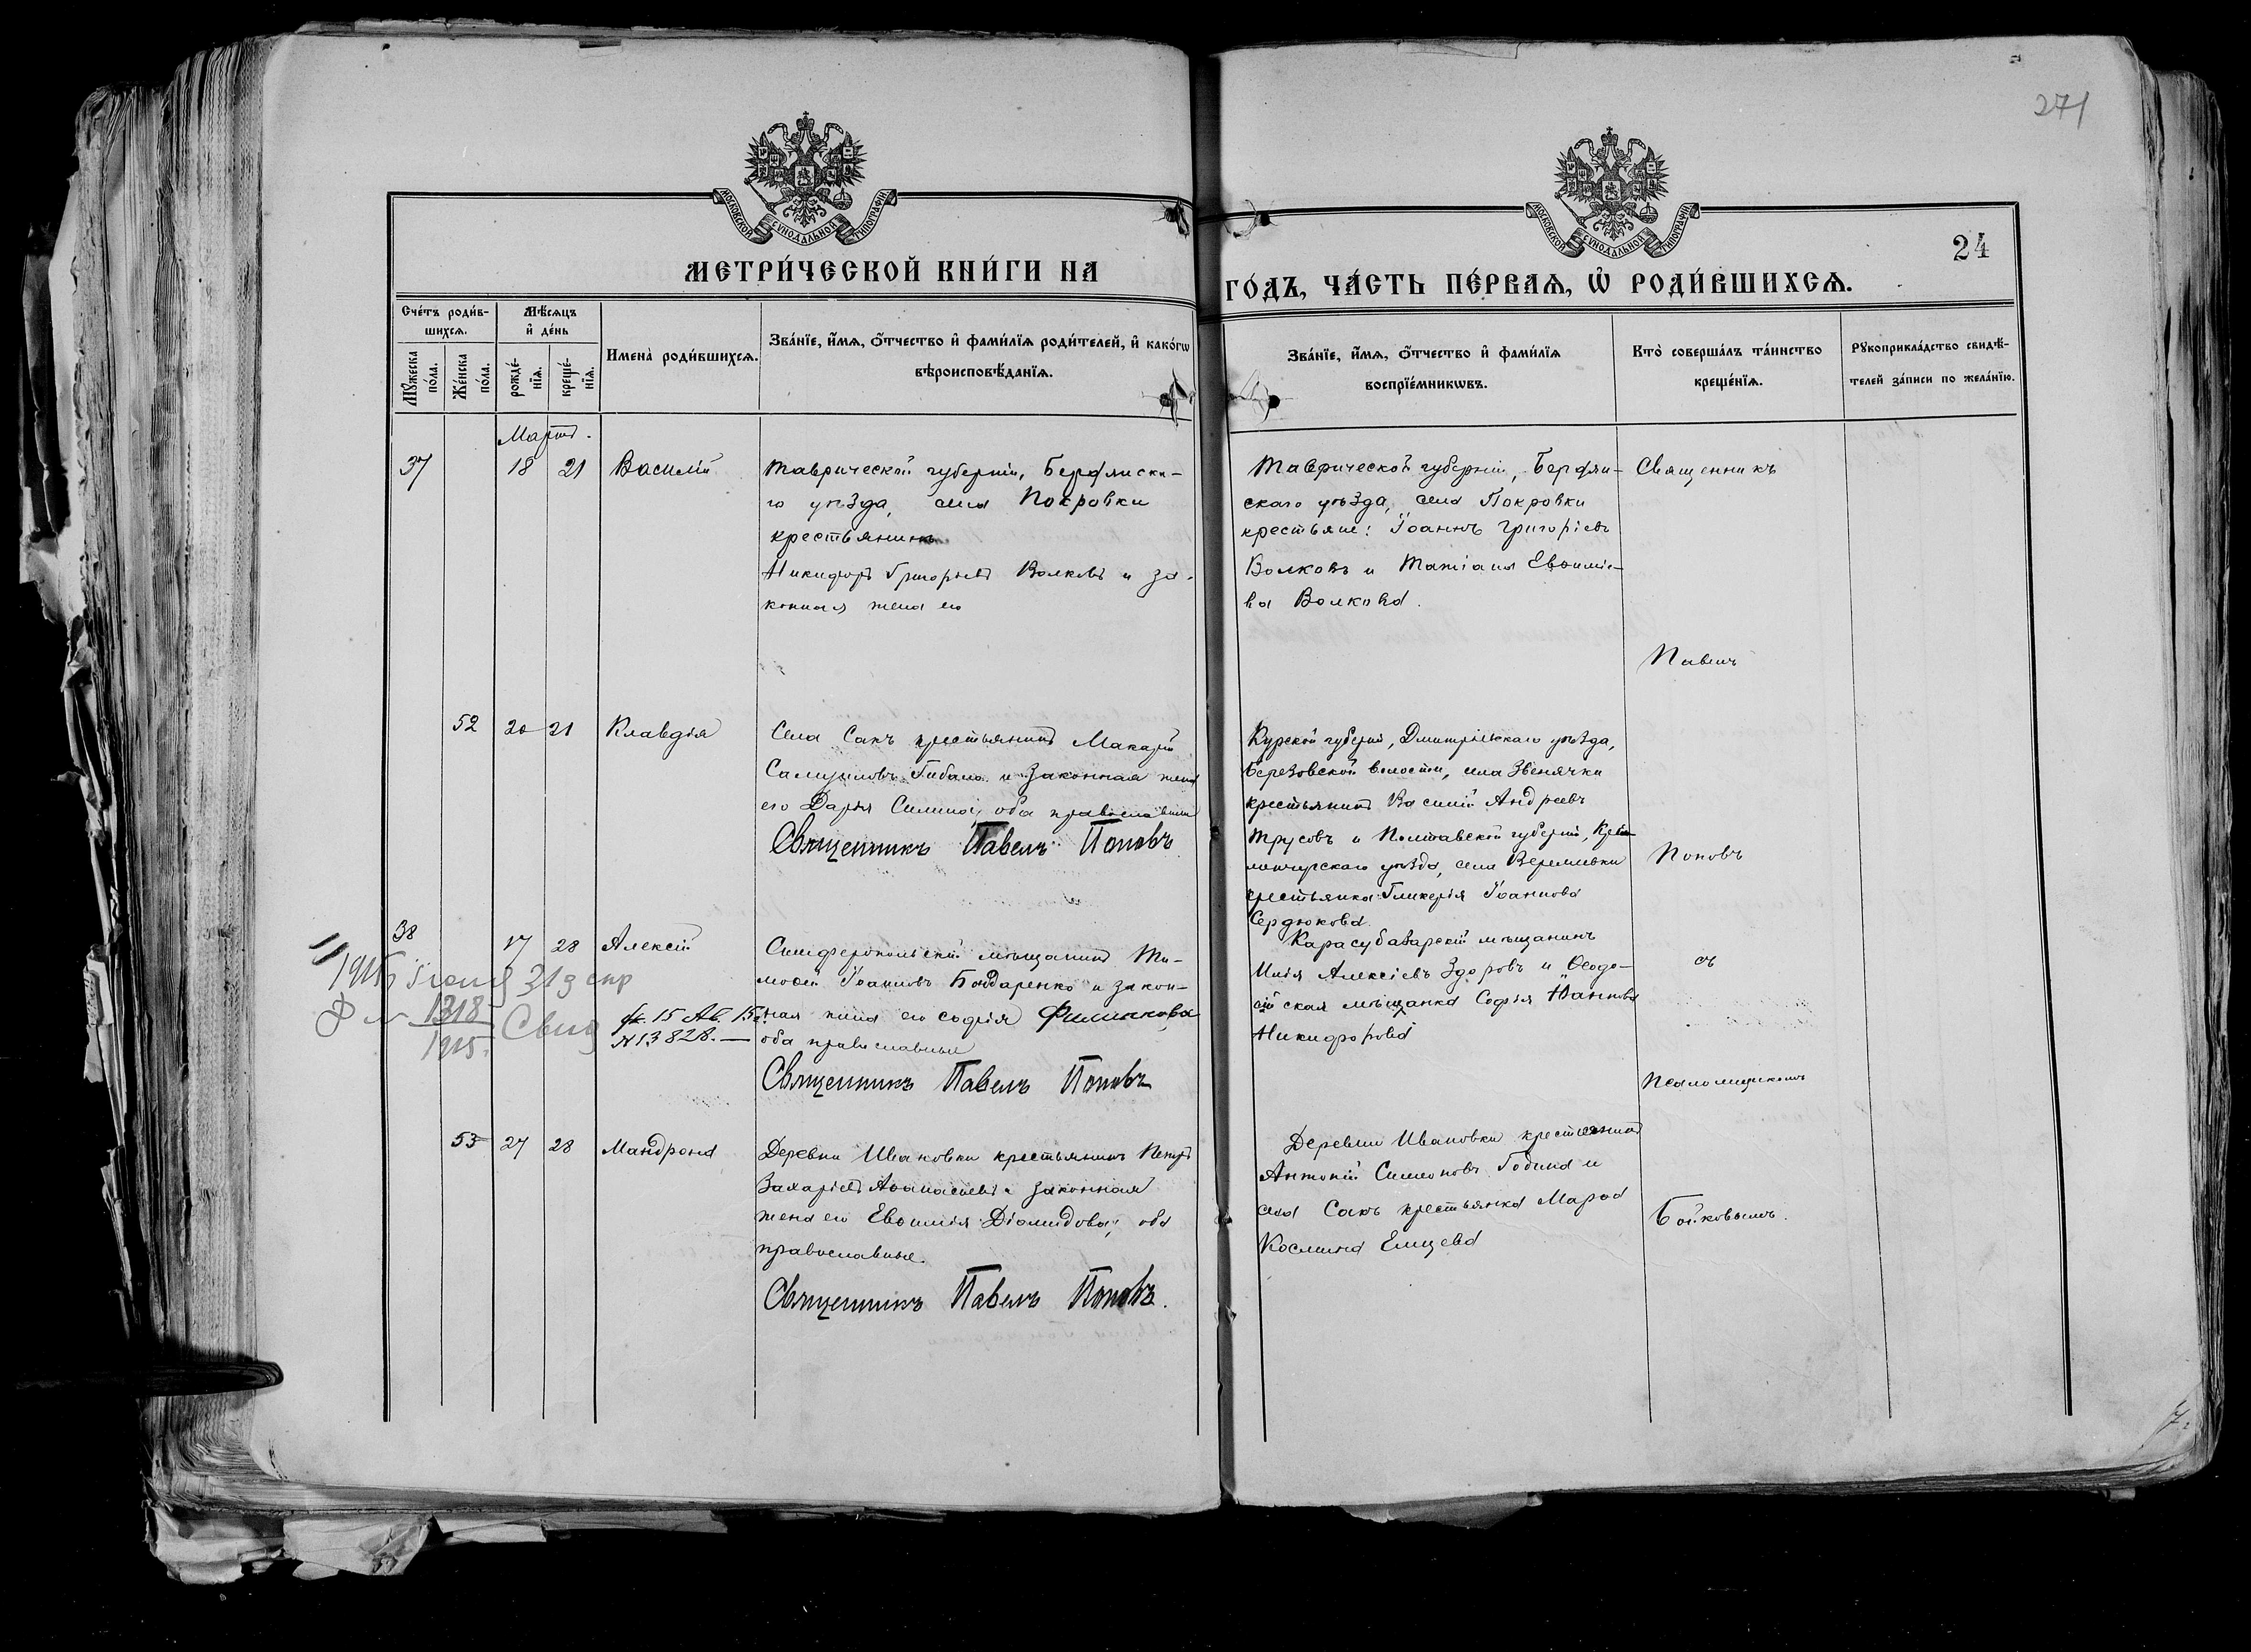 271
МОСКОВСКОЙ СУНОДАЛЬНОЙ ТИПОГРАФІИ
МОСКОВСКОЙ СУНОДАЛЬНОЙ ТИПОГРАФІИ
24
МЕТРИ́ЧЕСКОЙ КНИ́ГИ НА
ГО́ДЪ, ЧА́СТЬ ПЕ́РВАѦ, Ѡ҆ РОДИ́ВШИХСѦ.
Сче́тъ роди́в-
шихсѧ.
Мѣ́сѧцъ
и҆ де́нь
Мꙋ́жеска по́ла.
Же́нска по́ла.
рожде́-нїѧ.
креще́-нїѧ.
Имена̀ роди́вшихсѧ.
Зва́нїе, и҆́мѧ, ѻ҆́тчество и҆ фами́лїѧ роди́телей, и҆ како́гѡ
вѣроисповѣ́данїѧ.
Зва́нїе, и҆́мѧ, ѻ҆́тчество и҆ фами́лїѧ
воспрїе́мникѡвъ.
Кто̀ соверша́лъ та́инство
креще́нїѧ.
Рꙋкоприкла́дство свидѣ́-
телей за́писи по жела́нїю.
Мартъ.
37 18 21 Василій
Таврической губерніи, Бердянска-
го уѣзда, села Покровки
крестьянинъ
Никифоръ Григорьевъ Волковъ и за-
конная жена его
Таврической губерніи, Бердян-
скаго уѣзда, села Покровки
крестьяне: Іоаннъ Григорьевъ
Волковъ и Татіана Евѳиміе-
ва Волкова.
Священникъ
Павелъ
52 20 21 Клавдія
Села Сакъ крестьянинъ Макарій
Самуиловъ и законная жена
его Дарья Симина, оба православные
Священникъ Павелъ Поповъ
Курской губерніи, Дмитріевскаго уѣзда,
Березовской волости, села Звенячки
крестьянинъ Василій Андреевъ
Трусовъ и Полтавской губерніи, Кре-
менчугскаго уѣзда, села Веремиевки
крестьянка Гликерія Іоаннова
Сердюкова.
Поповъ
38 17 28 Алексій
Симферопольскій мѣщанинъ Ти-
моѳей Іоанновъ Бондаренко и закон-
ная жена его Софія Филиппова
оба православные
Священникъ Павелъ Поповъ
Карасубазарскій мѣщанинъ
Илія Алексіевъ Здоровъ и Ѳеодо-
сійская мѣщанка Софія Іоаннова
Никифорова
съ
псаломщикомъ
1915 Іюля 31 д спр
1318
1915
Свид
15 Ав. 15 г.
№ 13828.
53 27 28
Деревни Ивановки крестьянинъ Петръ
Захаріевъ Аѳанасьевъ и законная
жена его Евѳимія Діомидова, оба
православные.
Священникъ Павелъ Поповъ.
Деревни Ивановки крестьянинъ
Антоній Симоновъ Година и
села Сакъ крестьянка Марѳа
Космина Елцева
Бойковымъ.